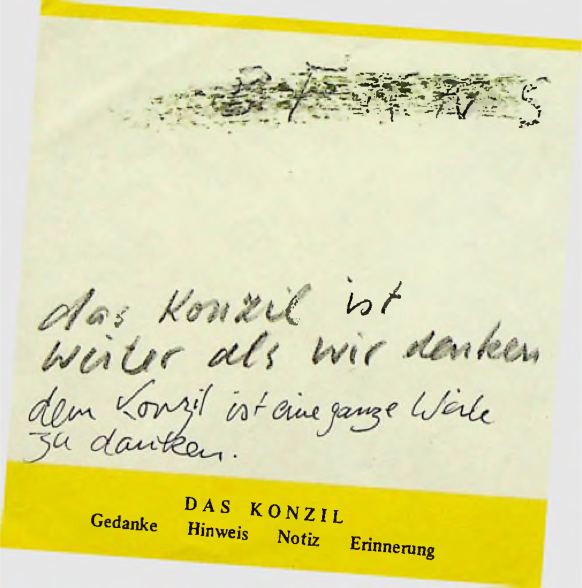 das Konzil ist
weiter als wir denken
dem Konzil ist eine ganze Weile
zu danken.
DAS KONZIL
Gedanke Hinweis Notiz Erinnerung